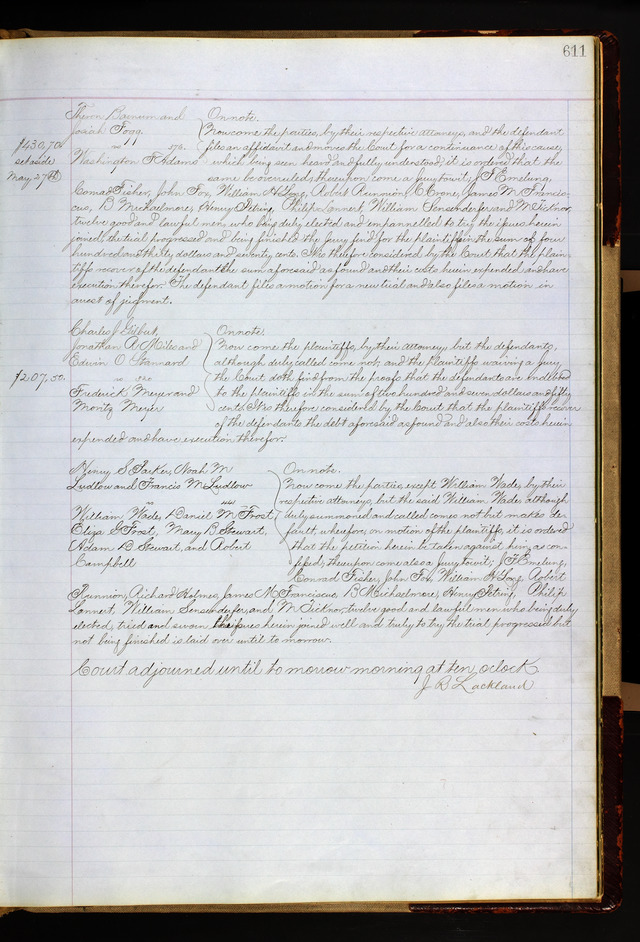 611
Theron Barnum and
Josiah Fogg.
vs 570.
Washington F Adams
$430,70.
set aside
May 27th
On note.
Now come the parties, by their respective attorneys, and the defendant
files an affidavit and moves the Court for a continuance of this cause,
which being seen heard and fully understood, it is ordered that the
same be overruled, thereupon come a jury towit; J F Emeling,
Conrad Fisher, John Fox, William H Long, Robert Runnion, C Crone, James M Francis-
cus, B Michaelmore, Henry Petring, Philip Connert, William Sensenderfer, and M Tictnor,
twelve good and lawful men, who being duly elected and empannelled to try the issues herein
joined, the trial progressed and being finished the jury find for the plaintiffs in the sum of four
hundred and thirty dollars and seventy cents. It is therefore considered by the Court that the plain-
tiffs recover of the defendant the sum aforesaid as found and their costs herein expended and have
execution therefor. The defendant files a motion for a new trial and also files a motion in
arrest of jugment.
Charles Gilbut,
Jonathan A Miles and
Edwin O Stannard
vs
Frederick Meyer and
Moritz Meyer
$207,50.
On note.
Now come the plaintiffs, by their attorney, but the defendants,
although duly called come not, and the Plaintiffs waiving a jury
the Court doth find from the proofs that the defendants are indebted
to the plaintiffs in the sum of two hundred and seven dollars and fifty
cents. It is therefore considered by the Court that the plaintiffs recover
of the defendants the debt aforesaid as found and also their costs herein
expended and have execution therefor.
Henry S Parker, Noah M
Ludlow and Francis M Ludlow
vs
William Wade, Daniel M Frost,
Eliza G Frost, Mary B Stewart,
Adam D Stewart, and Robert
Campbell
On note.
Now come the parties, except William Wade, by their
respective attorneys, but the said William Wade although
duly summoned and called comes not but makes de-
fault, wherefore, on motion of the plaintiffs, it is ordered
that the petition herein be taken against him, as con-
fessed, thereupon come also a jury towit; J F Emeling,
Conrad Fisher, John Fox, William H Long, Robert
Runnion, Richard Holmes, James M Franciscus, B Michaelmore, Henry Petring, Philip
Connert, William Sensenderfer, and M Tictnor, twelve good and lawful men who being duly
elected, tried and sworn the issues herein joined well and truly to try the trial progressed but
not being finished is laid over until to morrow.
Court adjourned until to morrow morning at ten oclock
J R Lackland